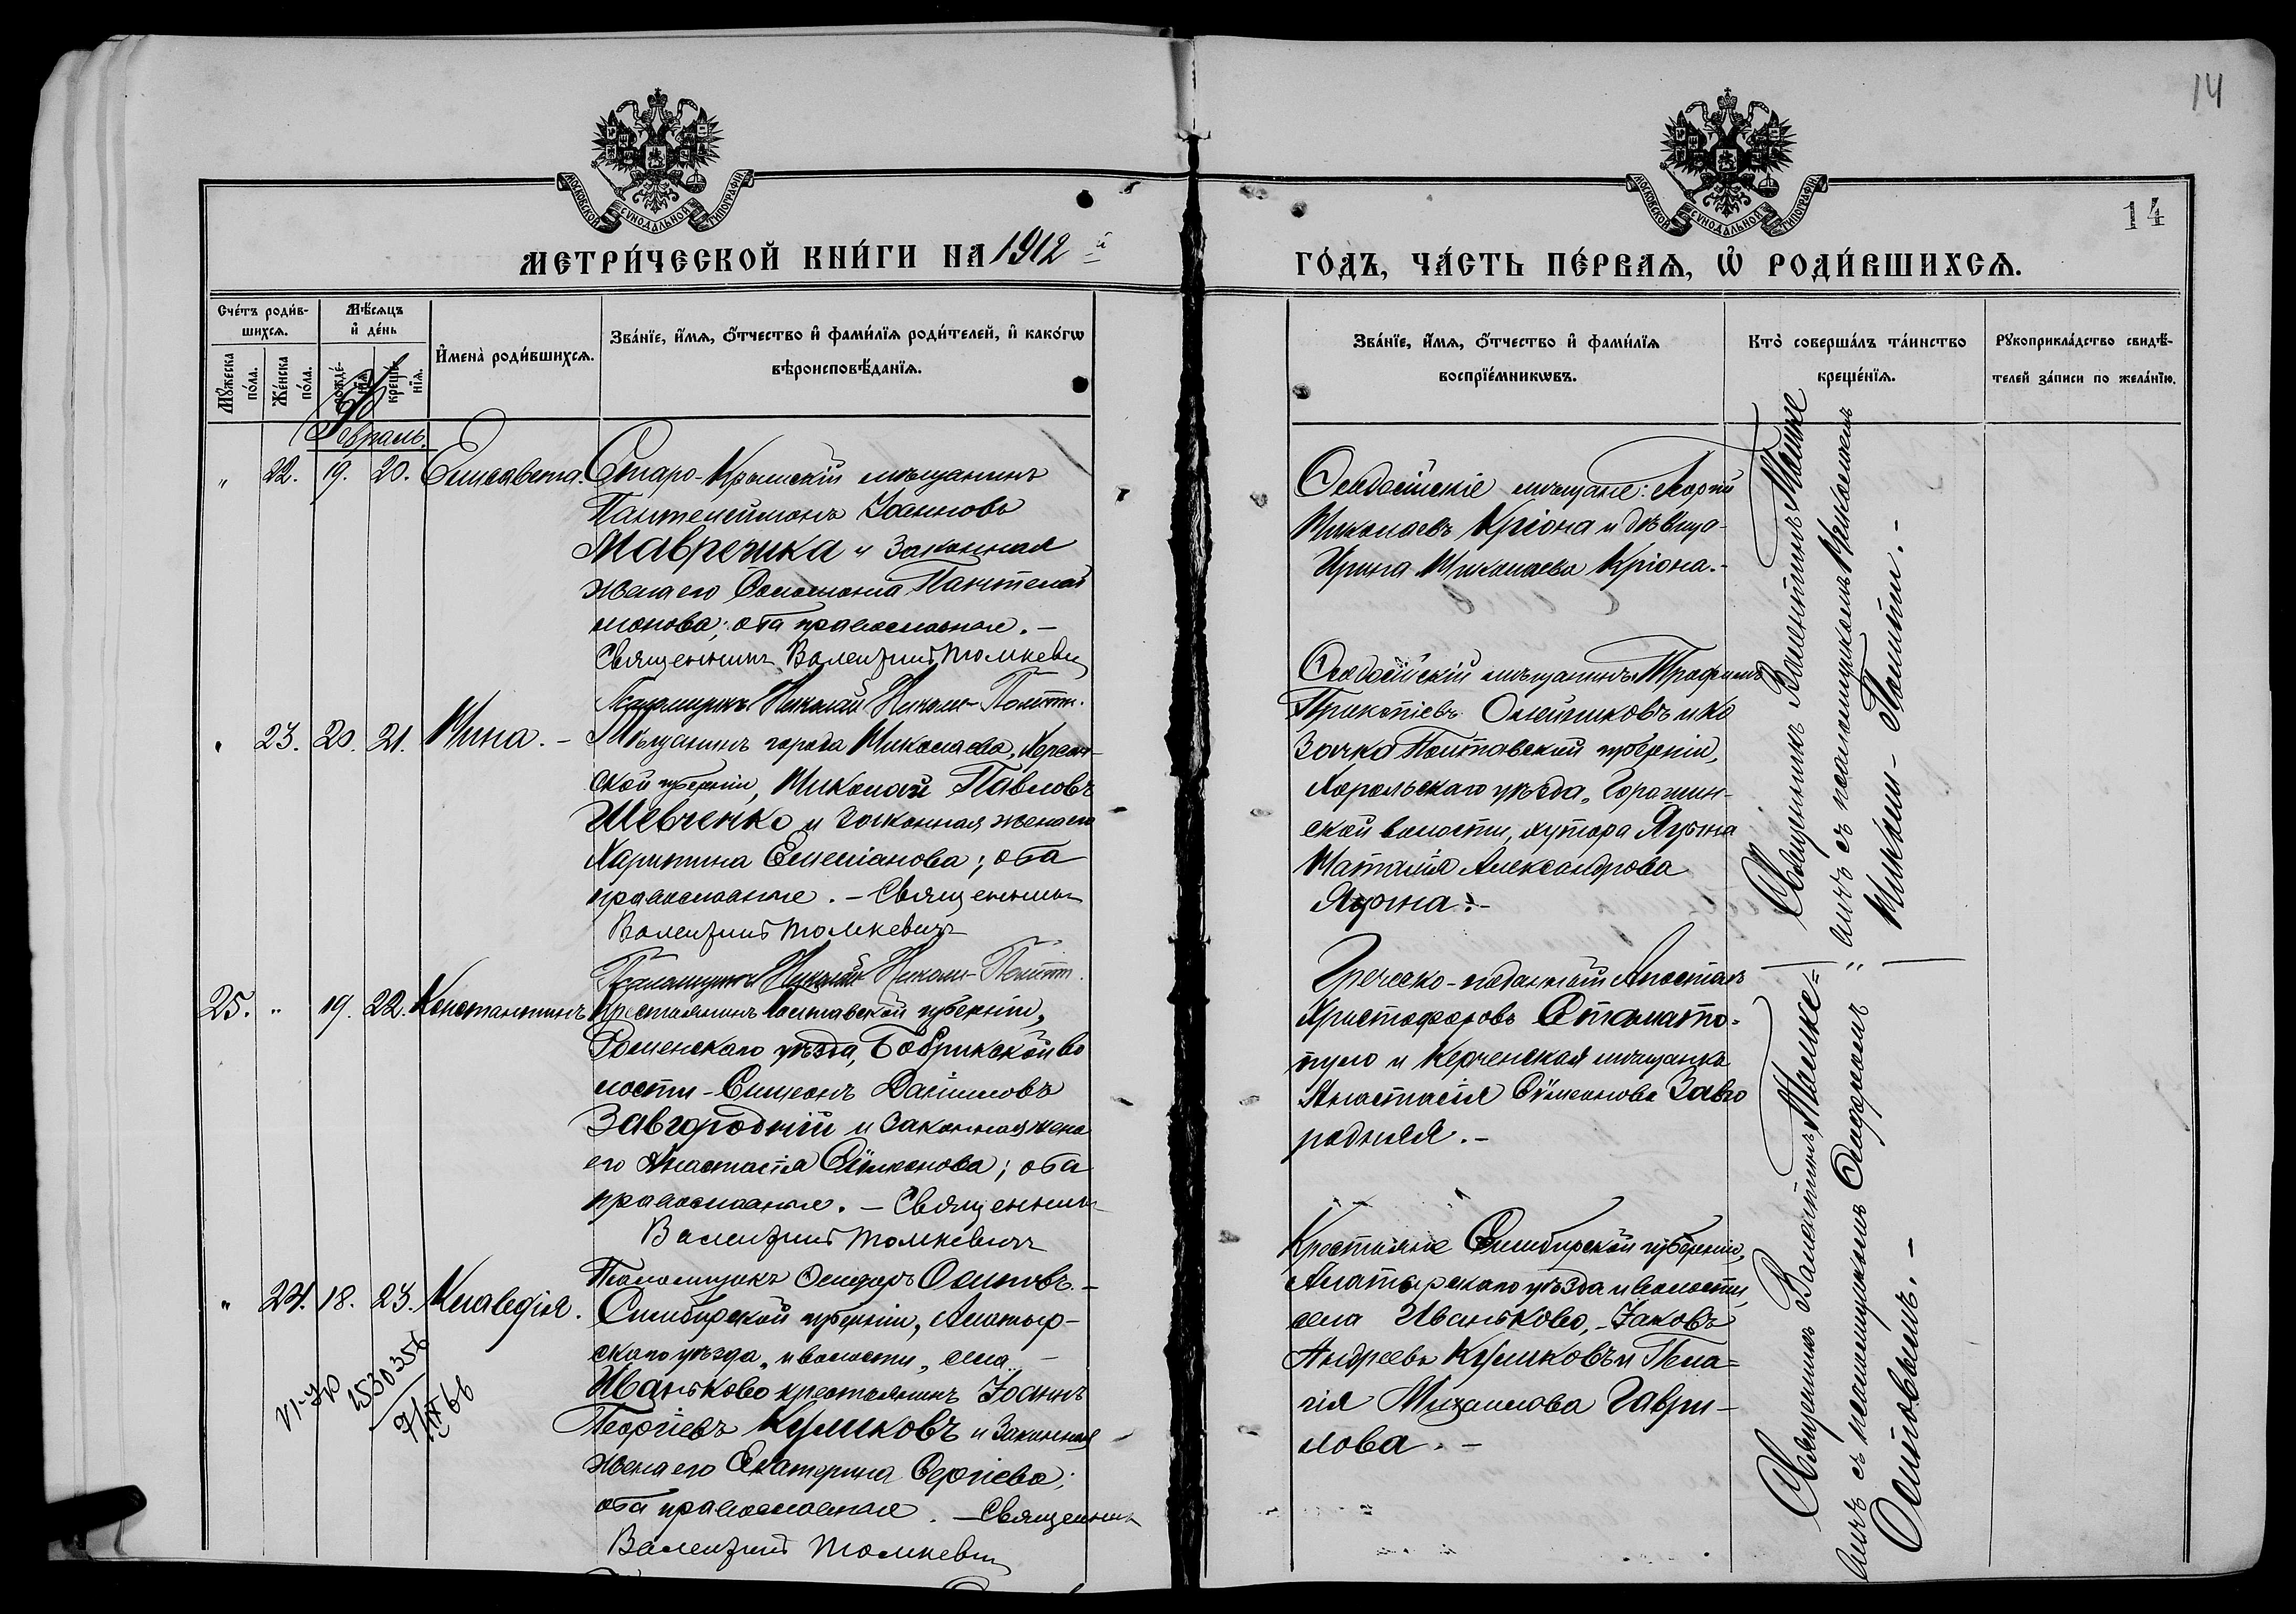 14
14
МОСКОВСКОЙ СѴНОДАЛЬНОЙ ТИПОГРАФІИ
МОСКОВСКОЙ СѴНОДАЛЬНОЙ ТИПОГРАФІИ
МЕТРИ́ЧЕСКОЙ КНИ́ГИ НА 1912 й
ГО́ДЪ, ЧА́СТЬ ПЕ́РВАѦ, Ѡ҆ РОДИ́ВШИХСѦ.
Сче́тъ роди́в-
шихсѧ.
Мꙋ́жеска по́ла.
Же́нска по́ла.
Мѣ́сѧцъ
и҆ де́нь
рожде́-
нїѧ.
креще́-
нїѧ.
И҆мена̀ роди́вшихсѧ.
Зва́нїе, и҆́мѧ, ѻ҆́тчество и҆ фами́лїѧ роди́телей, и҆ како́гѡ
вѣроисповѣ́данїѧ.
Зва́нїе, и҆́мѧ, ѻ҆́тчество и҆ фами́лїѧ
воспрїе́мникѡвъ.
Кто̀ соверша́лъ та́инство
креще́нїѧ.
Рꙋкоприкла́дство свидѣ́-
телей за́писи по жела́нїю.
Февраль.
" 22. 19. 20. Елисавета.
Старо-Крымскій мѣщанинъ
Пантелеймонъ Іоанновъ
Мавренчка и законная
жена его Соломонія Пантелей
монова; оба православные. –
Священникъ Валентинъ Томкевич
Псаломщикъ Николай Николи-Политти.
Ѳеодосійскіе мѣщане: Ѳорпій
Николаевъ Кріона и дѣвица
Ирина Николаева Кріона. –
Священникъ Валентинъ Томке
вичъ съ псаломщикомъ Николаемъ
Николи-Политти. –
" 23. 20. 21. Нина. –
Мѣщанинъ города Николаева, Херсон-
ской губерніи, Николай Павловъ
Шевченко и законная жена его
Харитина Емеліанова; оба
православные. – Священникъ
Валентинъ Томкевичъ
Псаломщикъ Николай Николи-Политти.
Ѳеодосійскій мѣщанинъ Трофимъ
Прокопіевъ Олейниковъ и ко
зачка Полтавской губерніи,
Хорольскаго уѣзда, Горошин-
ской волости, хутора Ярына
Наталія Александрова
Ярына. –
25. " 19. 22. Константинъ
Крестьянинъ Полтавской губерніи,
Роменскаго уѣзда, Бобрикской во
лости – Симеонъ Даніиловъ
Завгородній и законная жена
его Анастасія Сѵмеонова; оба
православные. – Священникъ
Валентинъ Томкевичъ
Псаломщикъ Ѳеодоръ Осиповъ. –
Греческо-подданный Апостолъ
Христофоровъ Стамато-
пуло и Керченская мѣщанка
Анастасія Сѵмеонова Завго
родняя. –
"
Священникъ Валентинъ Томке=
вичъ съ псаломщикомъ Ѳеодоромъ
Осиповымъ. –
" 24. 18. 23. Клавдія.
Симбирской губерніи, Алатыр-
скаго уѣзда, и волости, села –
Иваньково крестьянинъ Іоаннъ
Георгіевъ Куликовъ и законная
жена его Екатерина Сергіева;
оба православные. – Священникъ
Валентинъ Томкевич
Крестьяне Симбирской губерніи,
Алатырскаго уѣзда и волости,
села Иваньково, – Іаковъ
Андреевъ Куликовъ и Пела=
гія Михаилова Гаври-
лова. –
VI-Ур
1530356
9/IX 66